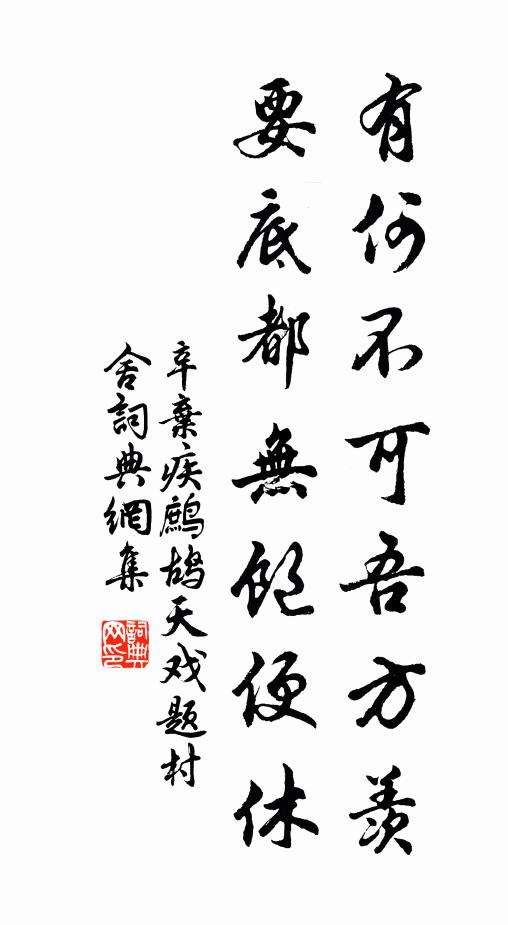 有何不可吾方羨
要底都無飽便休
辛棄疾鷓鴣天戏题村
舍詞典網集
詞典
网印